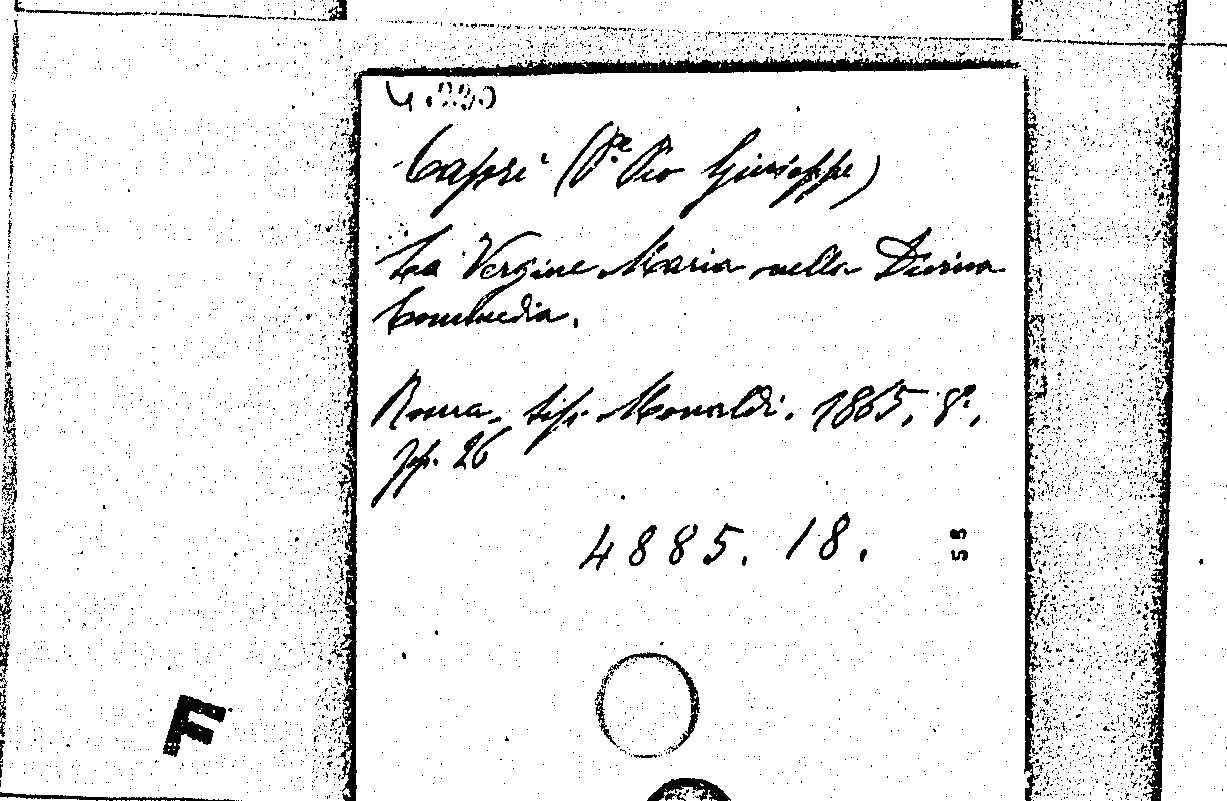 4.230
Capri (P.e Pio Giuseppe)
La Vergine Maria nella Divina
Commedia.
Roma, tip. Monaldi. 1865, 8°,
pp. 26
4885. 18.
58
F